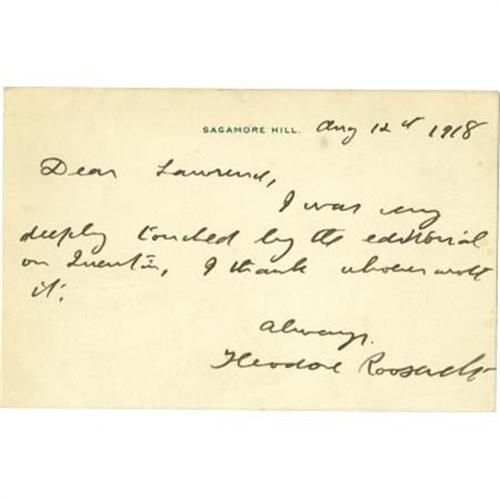 SAGAMORE HILL. Aug 12th 1918
Dear Lawrence,
I was very
deeply touched by the editorial
on Quentin, I thank whoever wrote
it.
Always.
Theodore Roosevelt